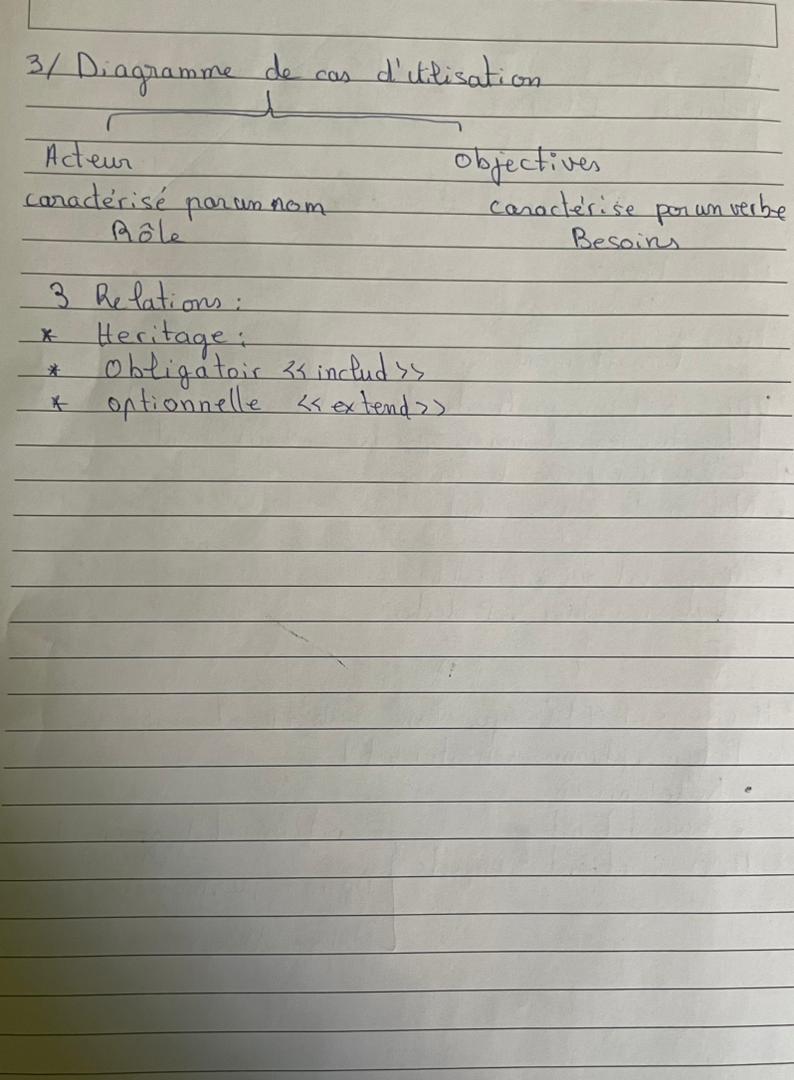 3/ Diagramme de cas d'utilisation
Acteur Objectives
caractérisé par un nom caractérise par un verbe
Rôle Besoins
3 Relations :
* Heritage :
* Obligatoir << includ >>
* optionnelle << extend >>